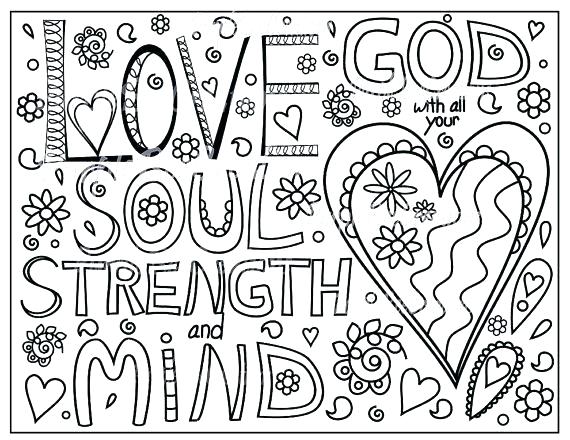 LOVE GOD
with all
your
SOUL.
STRENGTH
and
MIND